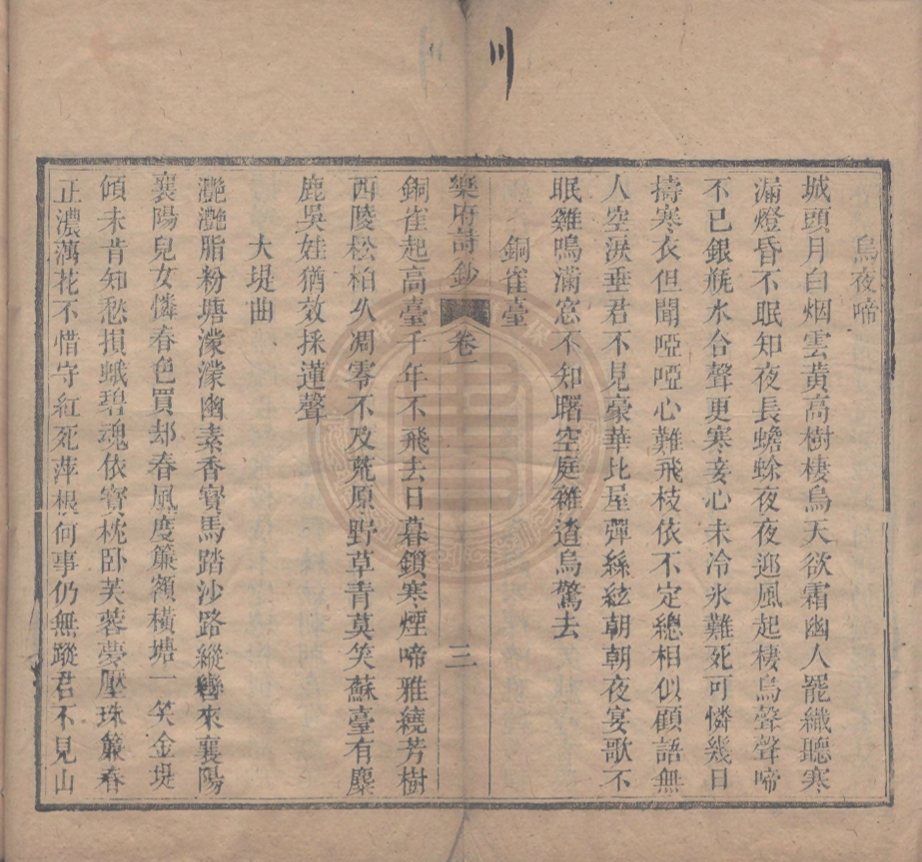 烏夜啼
城頭月白烟雲黄高樹棲烏天欲霜幽人罷織聽寒
漏燈昏不眠知夜長蟾蜍夜夜迎風起棲烏聲聲啼
不已銀瓶水合聲更寒妾心未冷氷難死可憐幾日
擣寒衣但聞啞啞心難飛枝依不定總相似顧語無
人空淚垂君不見豪華比屋彈絲絃朝朝夜宴歌不
眠雞鳴滿窓不知曙空庭雜遝烏驚去
銅雀臺
樂府詩鈔 卷一 三
銅雀起高臺千年不飛去日暮鎖寒煙啼雅繞芳樹
西陵松柏久凋零不及荒原野草青莫笑蘇臺有麋
鹿吳娃猶效採蓮聲
大堤曲
灔灔脂粉塘濛濛幽素香寶馬踏沙路縱轡來襄陽
襄陽兒女憐春色買却春風度簾額橫塘一笑金堤
傾未肯知愁損蛾碧魂依寶枕卧芙蓉夢壓珠簾春
正濃蕩花不惜守紅死萍根何事仍無蹤君不見山